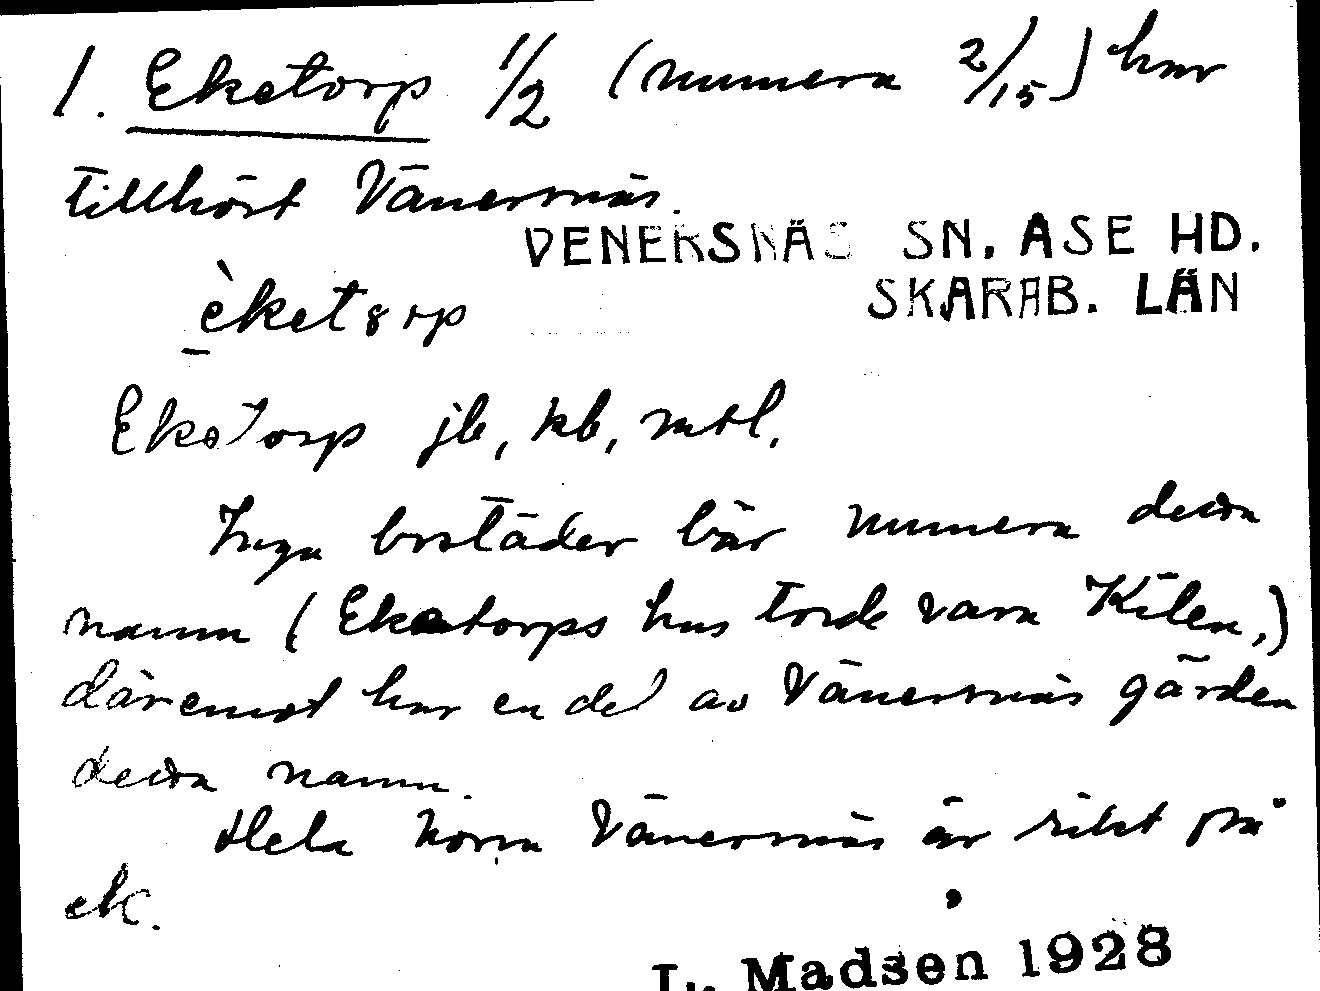 1. Eketorp 1/2 (numera 2/15) har
tillhört Vänersnäs.
VENERSNÄS SN. ASE HD.
SKARAB. LÄN
èketorp
Eketorp jb, kb, mtl.
Inga bostäder bär numera detta
namn (Eketorps hus torde vara Kilen,)
däremot har en del av Vänersnäs gärden
detta namn.
Hela norra Vänersnäs är rikt på
ek.
L. Madsen 1928